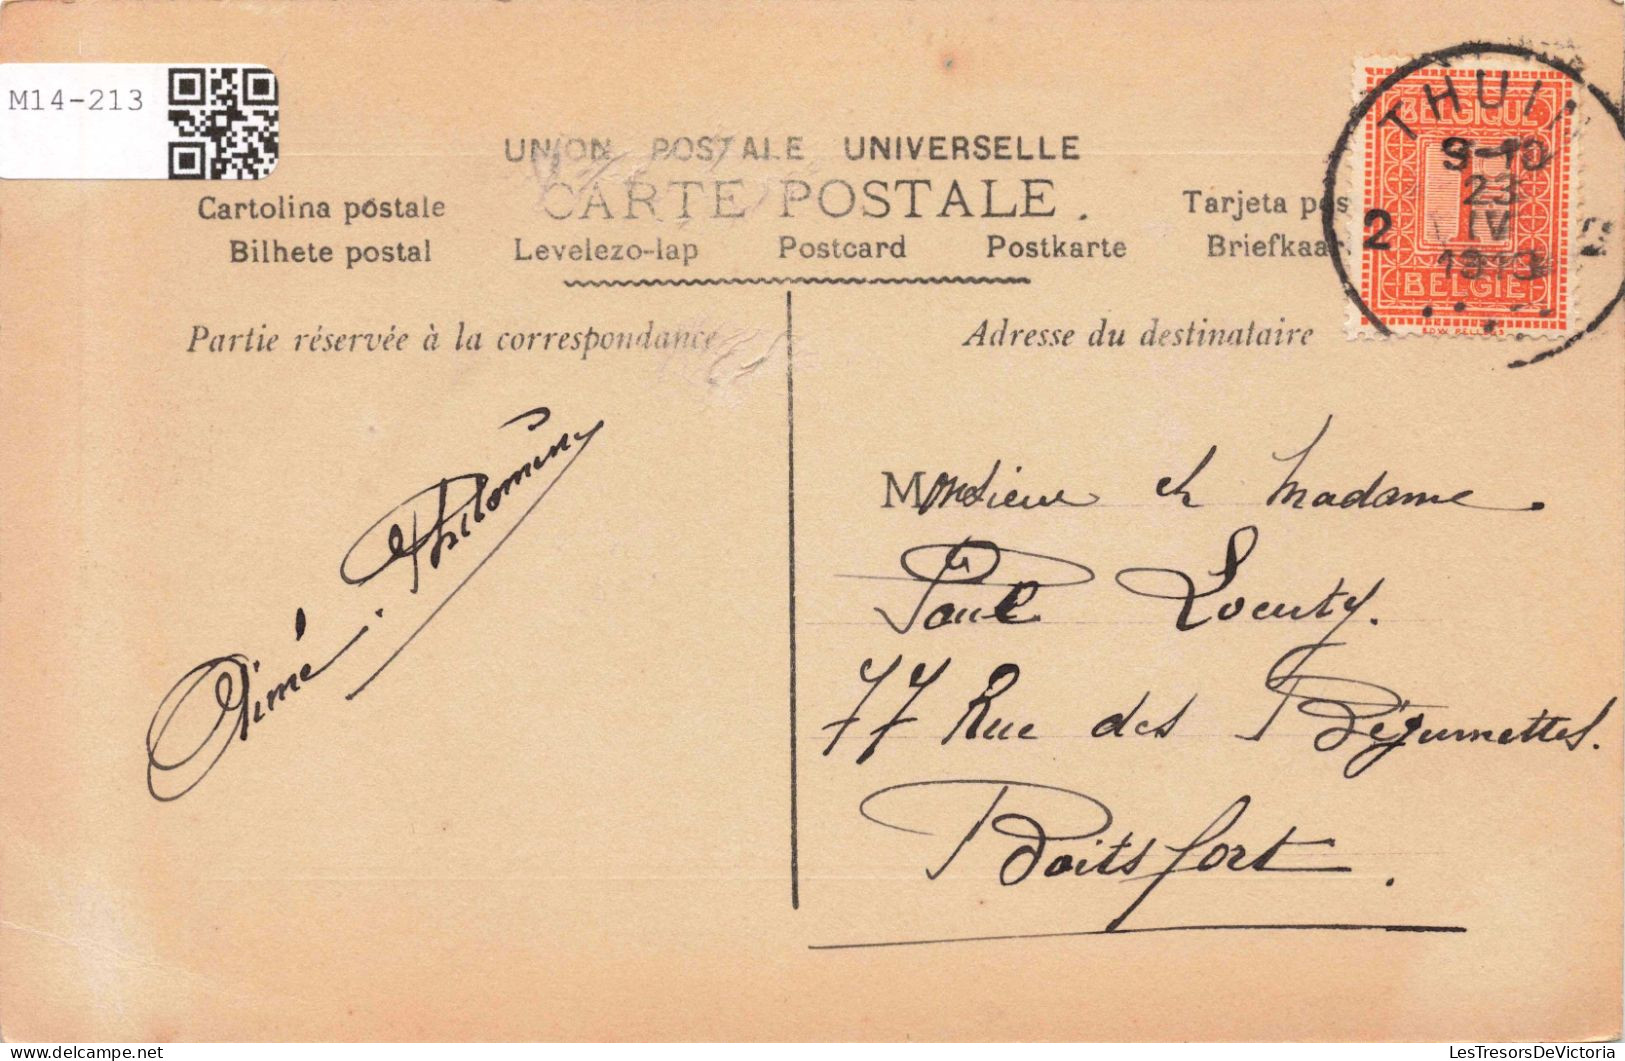 M14-213
UNION POSTALE UNIVERSELLE
CARTE POSTALE.
Cartolina postale
Tarjeta pos
Bilhete postal Levelezo-lap Postcard Postkarte Briefkaar
Partie réservée à la correspondance
Adresse du destinataire
BELGIQUE
1
BELGIE
THUI
9-10
23
IV
1913
2
Aimé. Philomène
Monsieur et Madame.
Paul Locuty.
77 Rue des Bégumettes.
Boitsfort.
LesTresorsDeVictoria